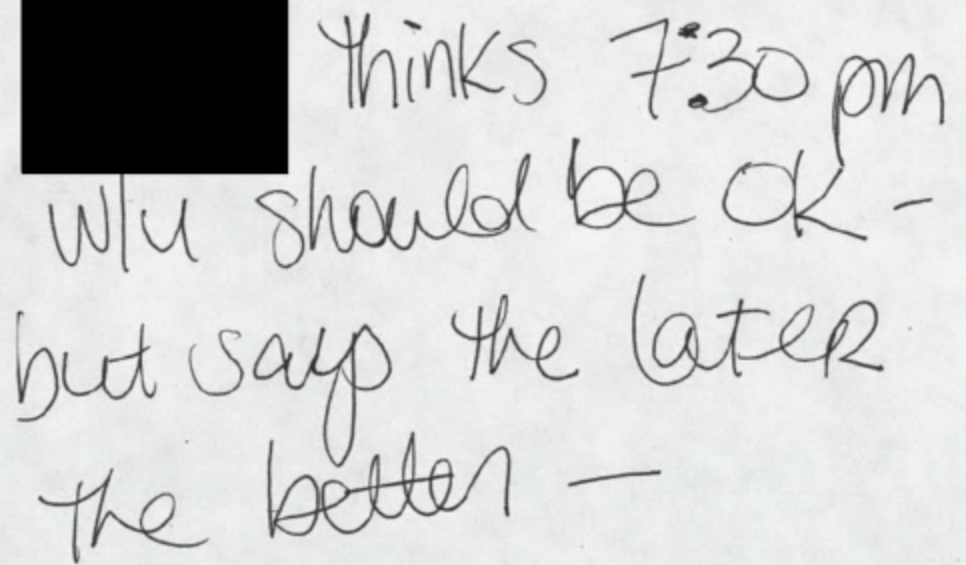 thinks 7:30 pm
w/u should be ok -
but says the later
the better —